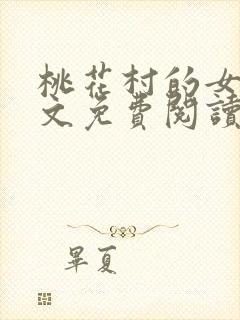 桃花村的女
文免費閱讀
畢夏